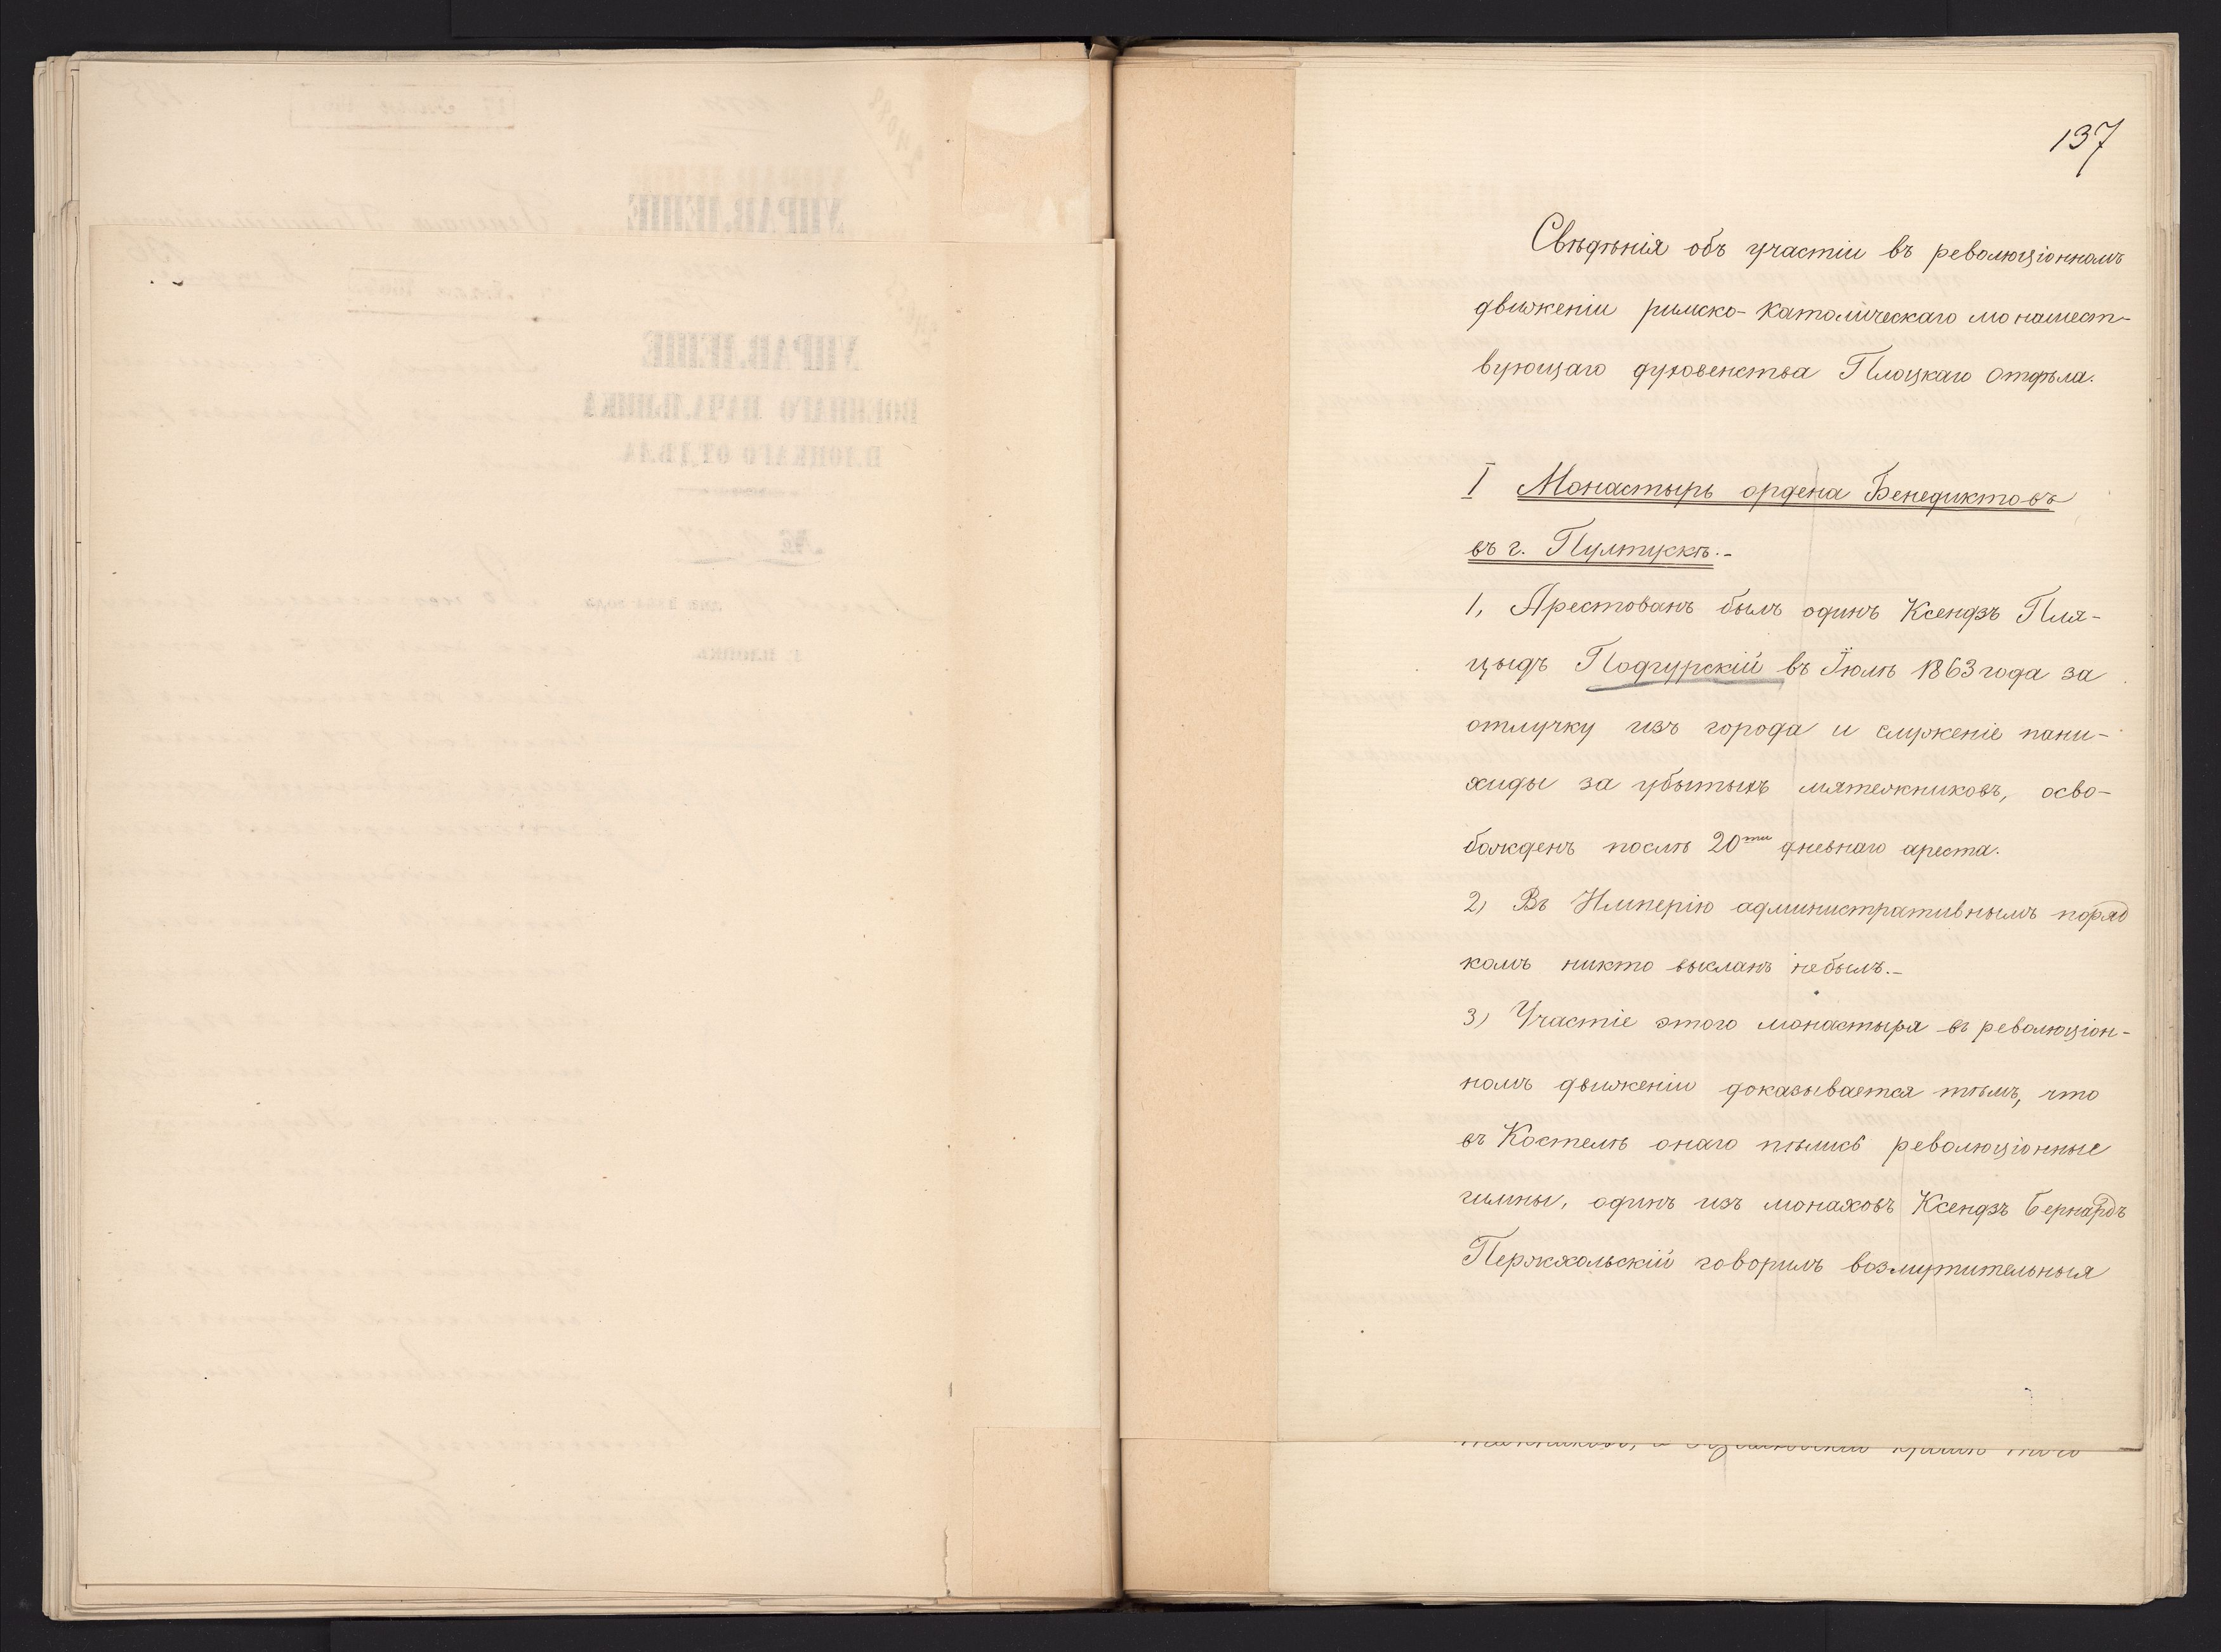 137
Свѣдѣнія объ участіи въ революціонномъ
движеніи римско-католическаго монашест-
вующаго духовенства Плоцкаго Отдѣла.
I Монастырь ордена Бенедиктовъ
въ г. Пултускѣ.-
1, Арестованъ былъ одинъ Ксендзъ Пля-
цыдъ Подгурскій въ Іюлѣ 1863 года за
отлучку изъ города и служеніе пани-
хиды за убитыхъ мятежниковъ, осво-
божденъ послѣ 20ти дневнаго ареста.
2) Въ Имперію административнымъ поряд
комъ никто высланъ небылъ.-
3) Участіе этого монастыря въ революціон-
номъ движеніи доказывается тѣмъ, что
въ Костелѣ онаго пѣлись революціонные
гимны, одинъ изъ монаховъ Ксендзъ Бернардъ
Пержхальскій говорилъ возмутительныя